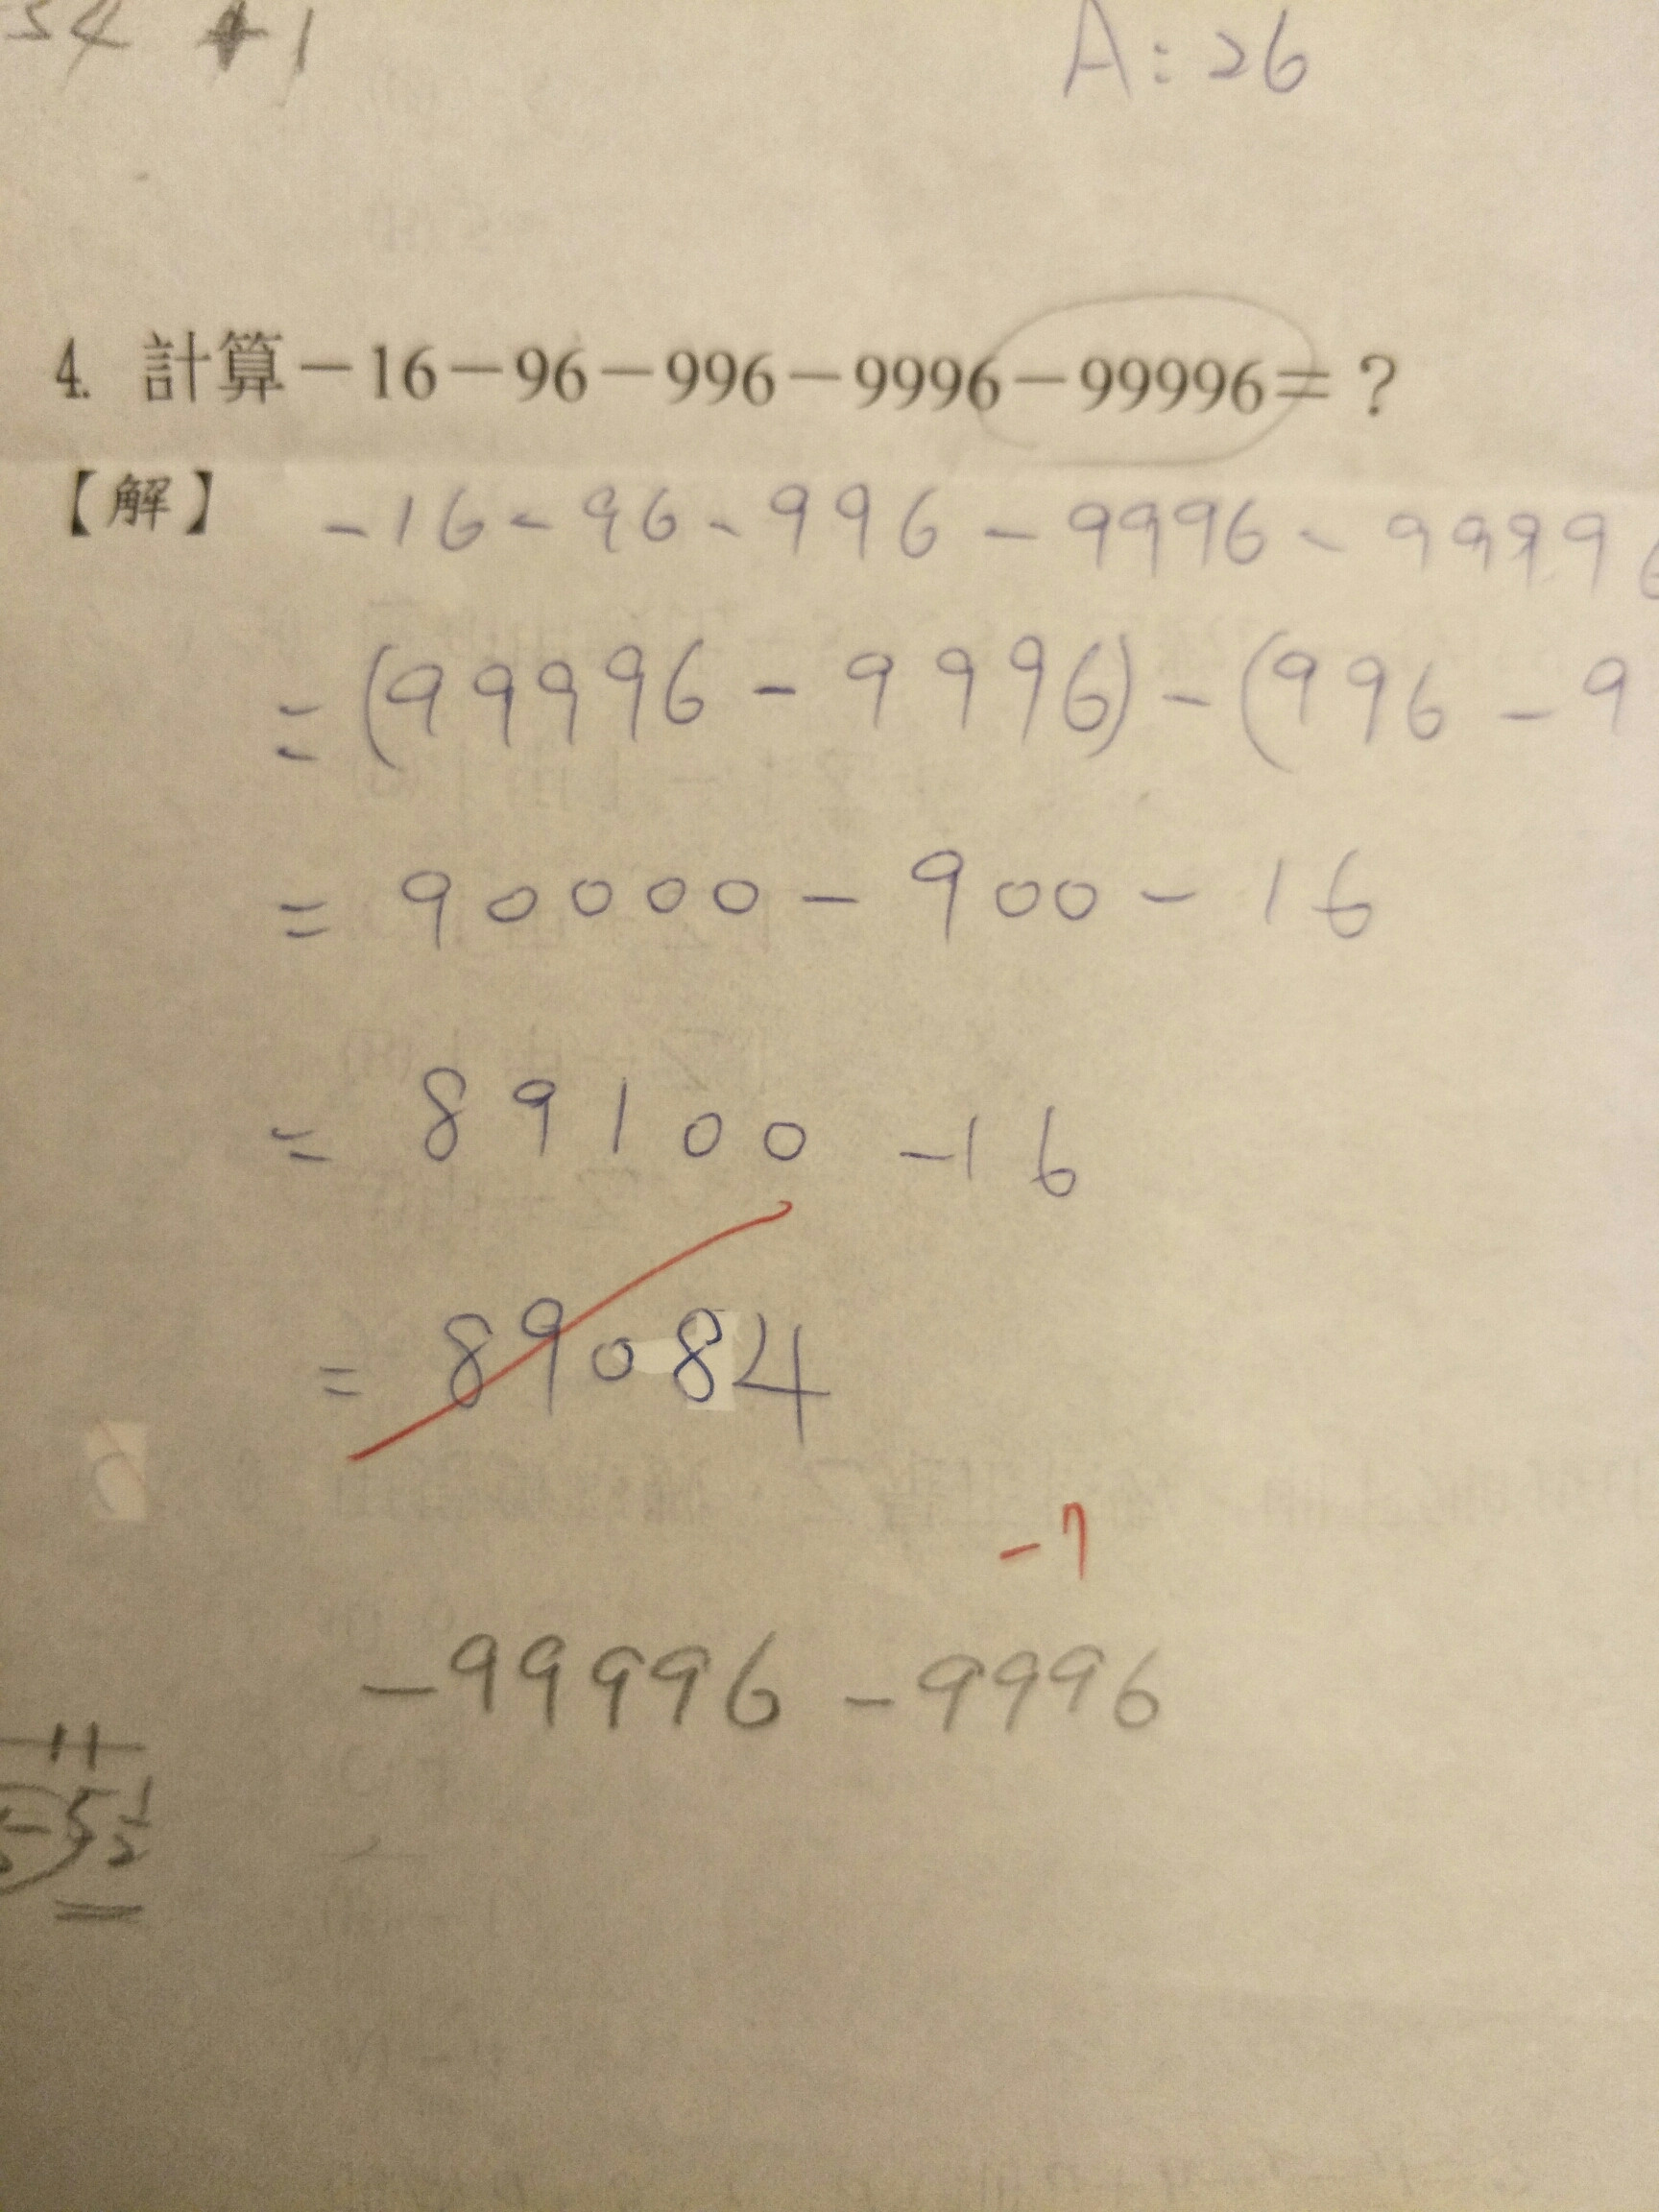 A:26
4. 計算－16－96－996－9996－99996＝？
【解】 -16-96-996-9996-9999
=(99996-9996)-(996-9
=90000-900-16
=89100-16
=89084
-7
-99996-9996
11